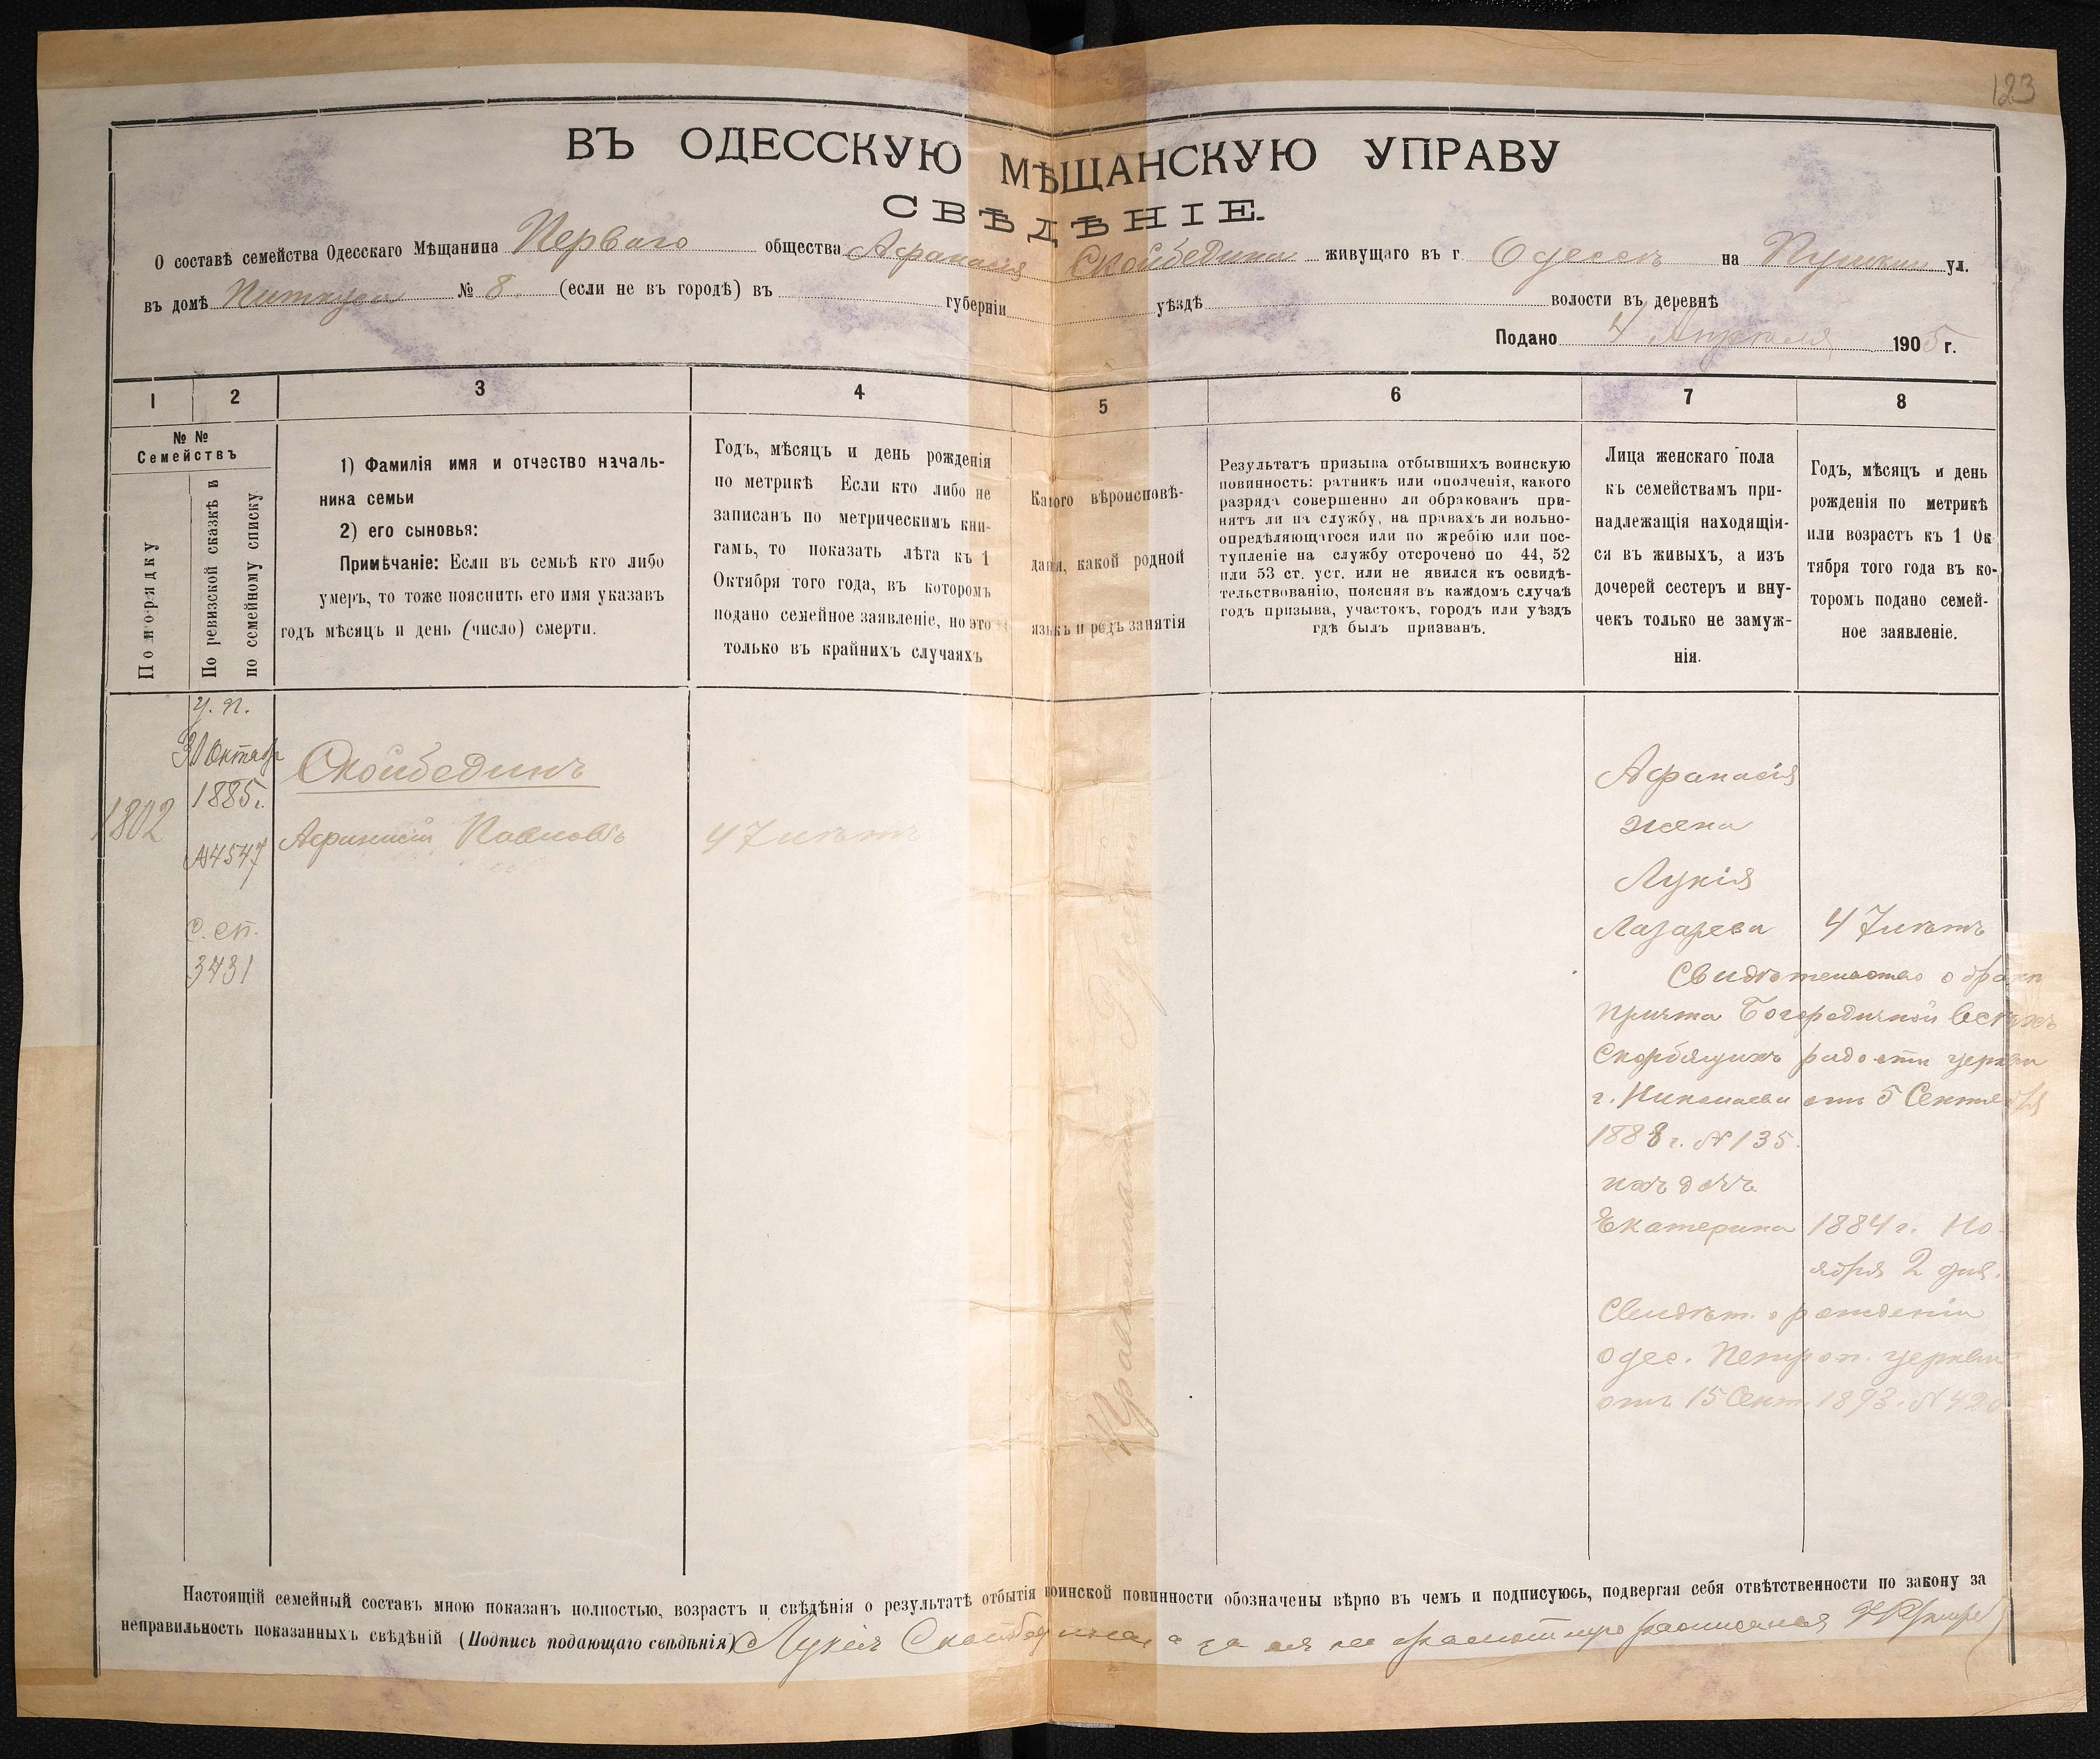 123
ВЪ ОДЕССКУЮ МѢЩАНСКУЮ УПРАВУ
СВѢДѢНІЕ.
О составѣ семейства Одесскаго Мѣщанина Перваго общества Афанасія Скойбедина живущаго въ г Одессѣ на Пушкин ул.
въ домѣ № 8. (если не въ городѣ) въ губерніи уѣздѣ волости въ деревнѣ
Подано 4 Апрѣля 1905 г.
1 2 3 4 5 6 7 8
№ №
Семействъ
По порядку
По ревизской сказкѣ и
по семейному списку
1) Фамилія имя и отчество началь-
ника семьи
2) его сыновья:
Примѣчаніе: Если въ семьѣ кто либо
умеръ, то тоже пояснить его имя указавъ
годъ мѣсяцъ и день (число) смерти.
Годъ, мѣсяцъ и день рожденія
по метрикѣ Если кто либо не
записанъ по метрическимъ кни-
гамъ, то показать лѣта къ 1
Октября того года, въ которомъ
подано семейное заявленіе, но это
только въ крайнихъ случаяхъ
Какого вѣроисповѣ-
данія, какой родной
языкъ и родъ занятія
Результатъ призыва отбывшихъ воинскую
повинность: ратникъ или ополченія, какого
разряда совершенно ли обракованъ при-
нятъ ли на службу, на правахъ ли вольно-
опредѣляющагося или по жребію или пос-
тупленіе на службу отсрочено по 44, 52
или 53 ст. уст. или не явился къ освидѣ-
тельствованію, поясняя въ каждомъ случаѣ
годъ призыва, участокъ, городъ или уѣздъ
гдѣ былъ призванъ.
Лица женскаго пола
къ семействамъ при-
надлежащія находящія-
ся въ живыхъ, а изъ
дочерей сестеръ и вну-
чекъ только не замуж-
нія.
Годъ, мѣсяцъ и день
рожденія по метрикѣ
или возрастъ къ 1 Ок-
тября того года въ ко-
торомъ подано семей-
ное заявленіе.
1802
у. п.
31 Октября
1885 г.
№ 4547
с. сп.
3431
Скойбединъ
Афанасій Павловъ
47 лѣтъ
Православнаго Русскій
Афанасія
жена
Лукія
Лазарева 47 лѣтъ
Свидѣтельство о бракѣ
Причта Богородичной Всѣхъ
Скорбящихъ радости церкви
г. Николаева отъ 5 Сентября
1888 г. № 135.
ихъ дочь
Екатерина 1884 г. Но-
ября 2 дня.
Свидѣт. о рожденіи
одес. Петроп. церкви
отъ 15 Сент. 1893. № 420
Настоящій семейный составъ мною показанъ полностью, возрастъ и свѣдѣнія о результатѣ отбытія воинской повинности обозначены вѣрно въ чемъ и подписуюсь, подвергая себя отвѣтственности по закону за
неправильность показанныхъ свѣдѣній (Подпись подающаго свѣдѣнія) Лукія Скойбедина а за ея не грамотную росписался